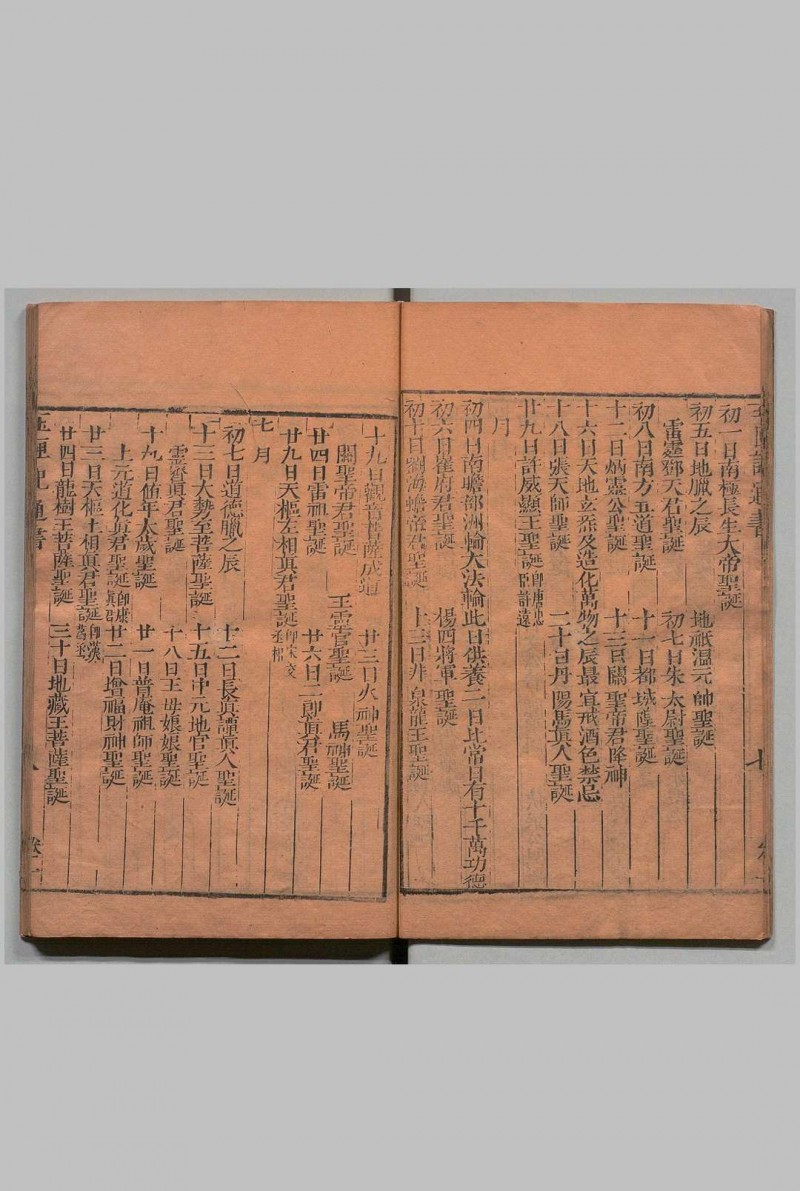 初一日南極長生大帝聖誕
初五日地臘之辰　地祇温元帥聖誕
雷霆鄧天君聖誕　初七日朱太尉聖誕
初八日南方五道聖誕　十一日都城隍聖誕
十二日炳靈公聖誕　十三日關聖帝君降神
十六日天地玄炁及造化萬物之辰最宜戒酒色禁忌
十八日張天師聖誕　二十日丹陽馬眞人聖誕
廿九日許威顯王聖誕卽唐忠臣許遠
月
初四日南瞻部洲輪大法輪此日供養一日比常日有十千萬功德
初六日崔府君聖誕　楊四將軍聖誕
初十日劉海蟾帝君聖誕　十三日井泉龍王聖誕
十九日觀音菩薩成道　廿三日火神聖誕
關聖帝君聖誕　王靈官聖誕　馬神聖誕
廿四日雷祖聖誕　廿六日二郎眞君聖誕
廿九日天樞左相眞君聖誕卽宋文丞相
七月
初七日道德臘之辰　十二日長眞譚眞人聖誕
十三日大勢至菩薩聖誕　十五日中元地官聖誕
靈濟眞君聖誕　十八日王母娘娘聖誕
十九日值年太歲聖誕　廿一日普庵祖師聖誕
上元道化眞君聖誕卽唐眞君　廿二日增福財神聖誕
廿三日天樞上相眞君聖誕卽漢諸葛丞
廿四日龍樹王菩薩聖誕　三十日地藏王菩薩聖誕